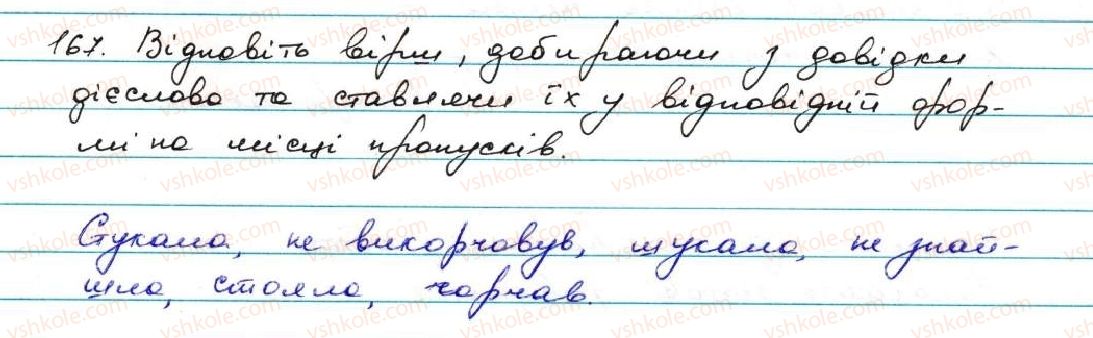 167. Відповіть вірш, добираючи з довідки
дієслова та ставлячи їх у відповідній фор-
мі на місці пропусків.
Стукала, не викорчовув, шукала, не знай-
шла, стояла, чорчав.